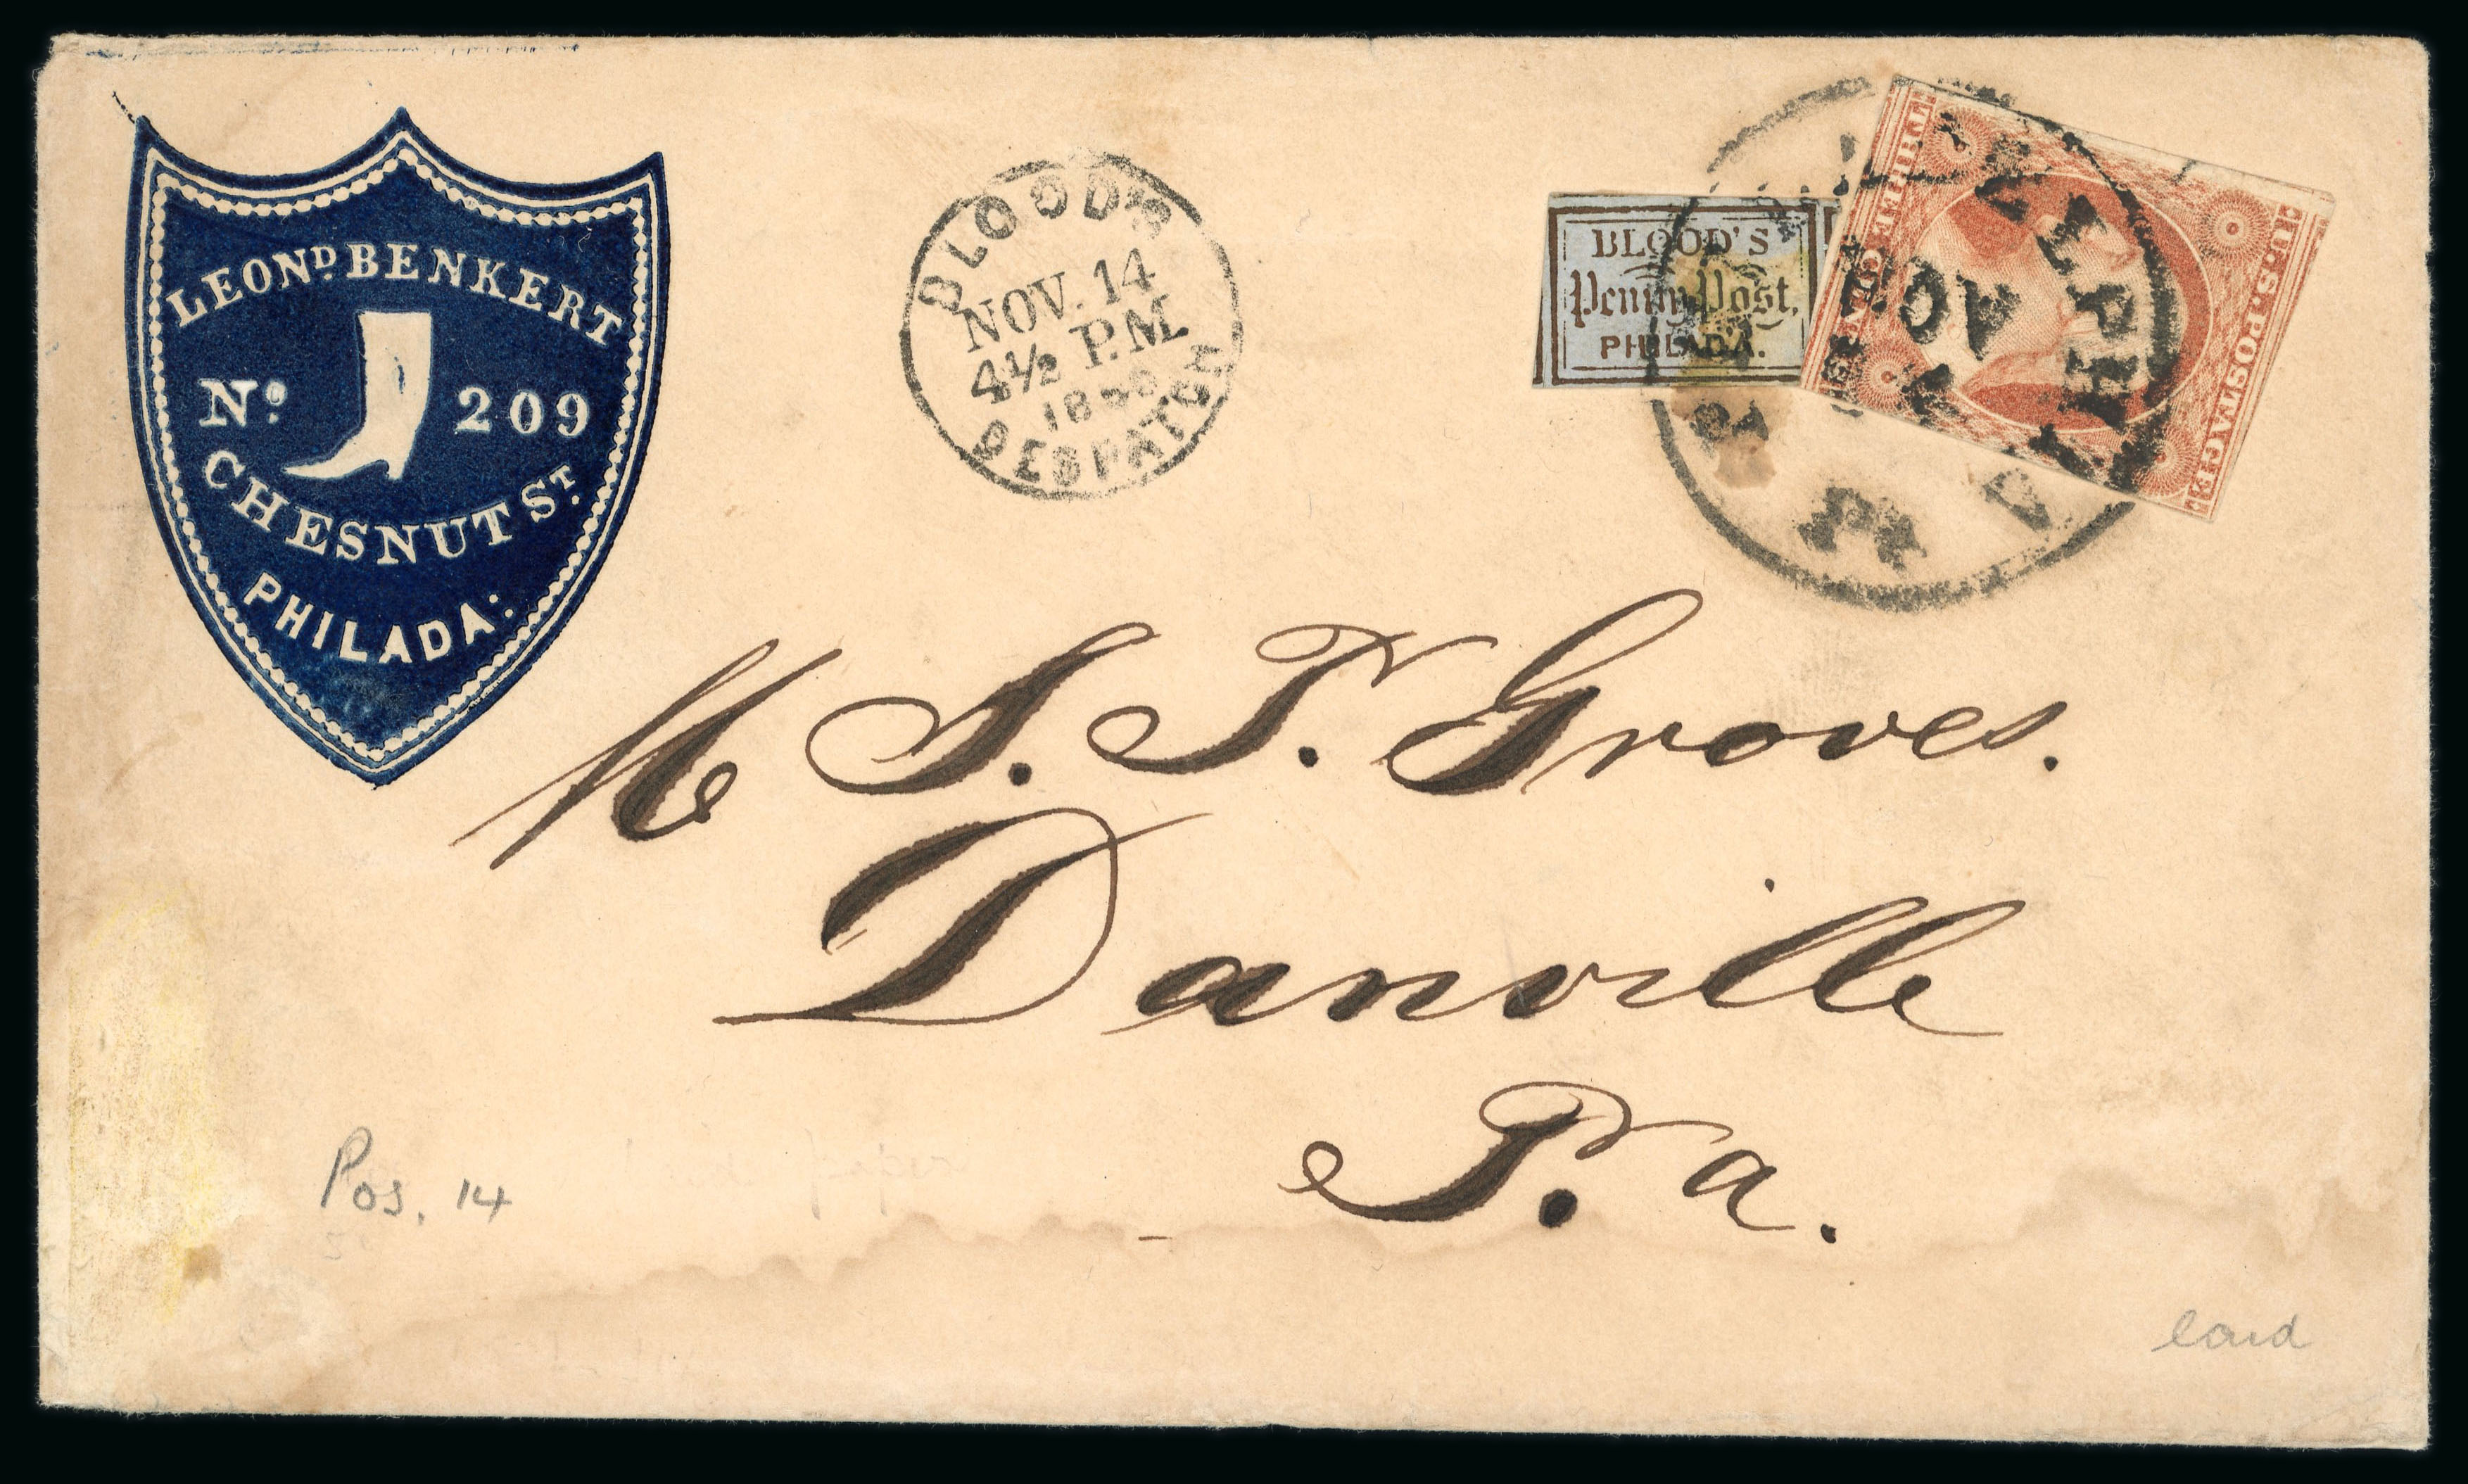 LEOND. BENKERT
No. 209
CHESNUT ST.
PHILADA:
BLOOD'S
NOV. 14
4½ P.M
DESPATCH
BLOOD'S
Penny Post,
PHILAD'A.
THREE CENTS
U.S. POSTAGE
NOV
M S. T. Groves.
Danville
Pa.
Pos. 14
laid